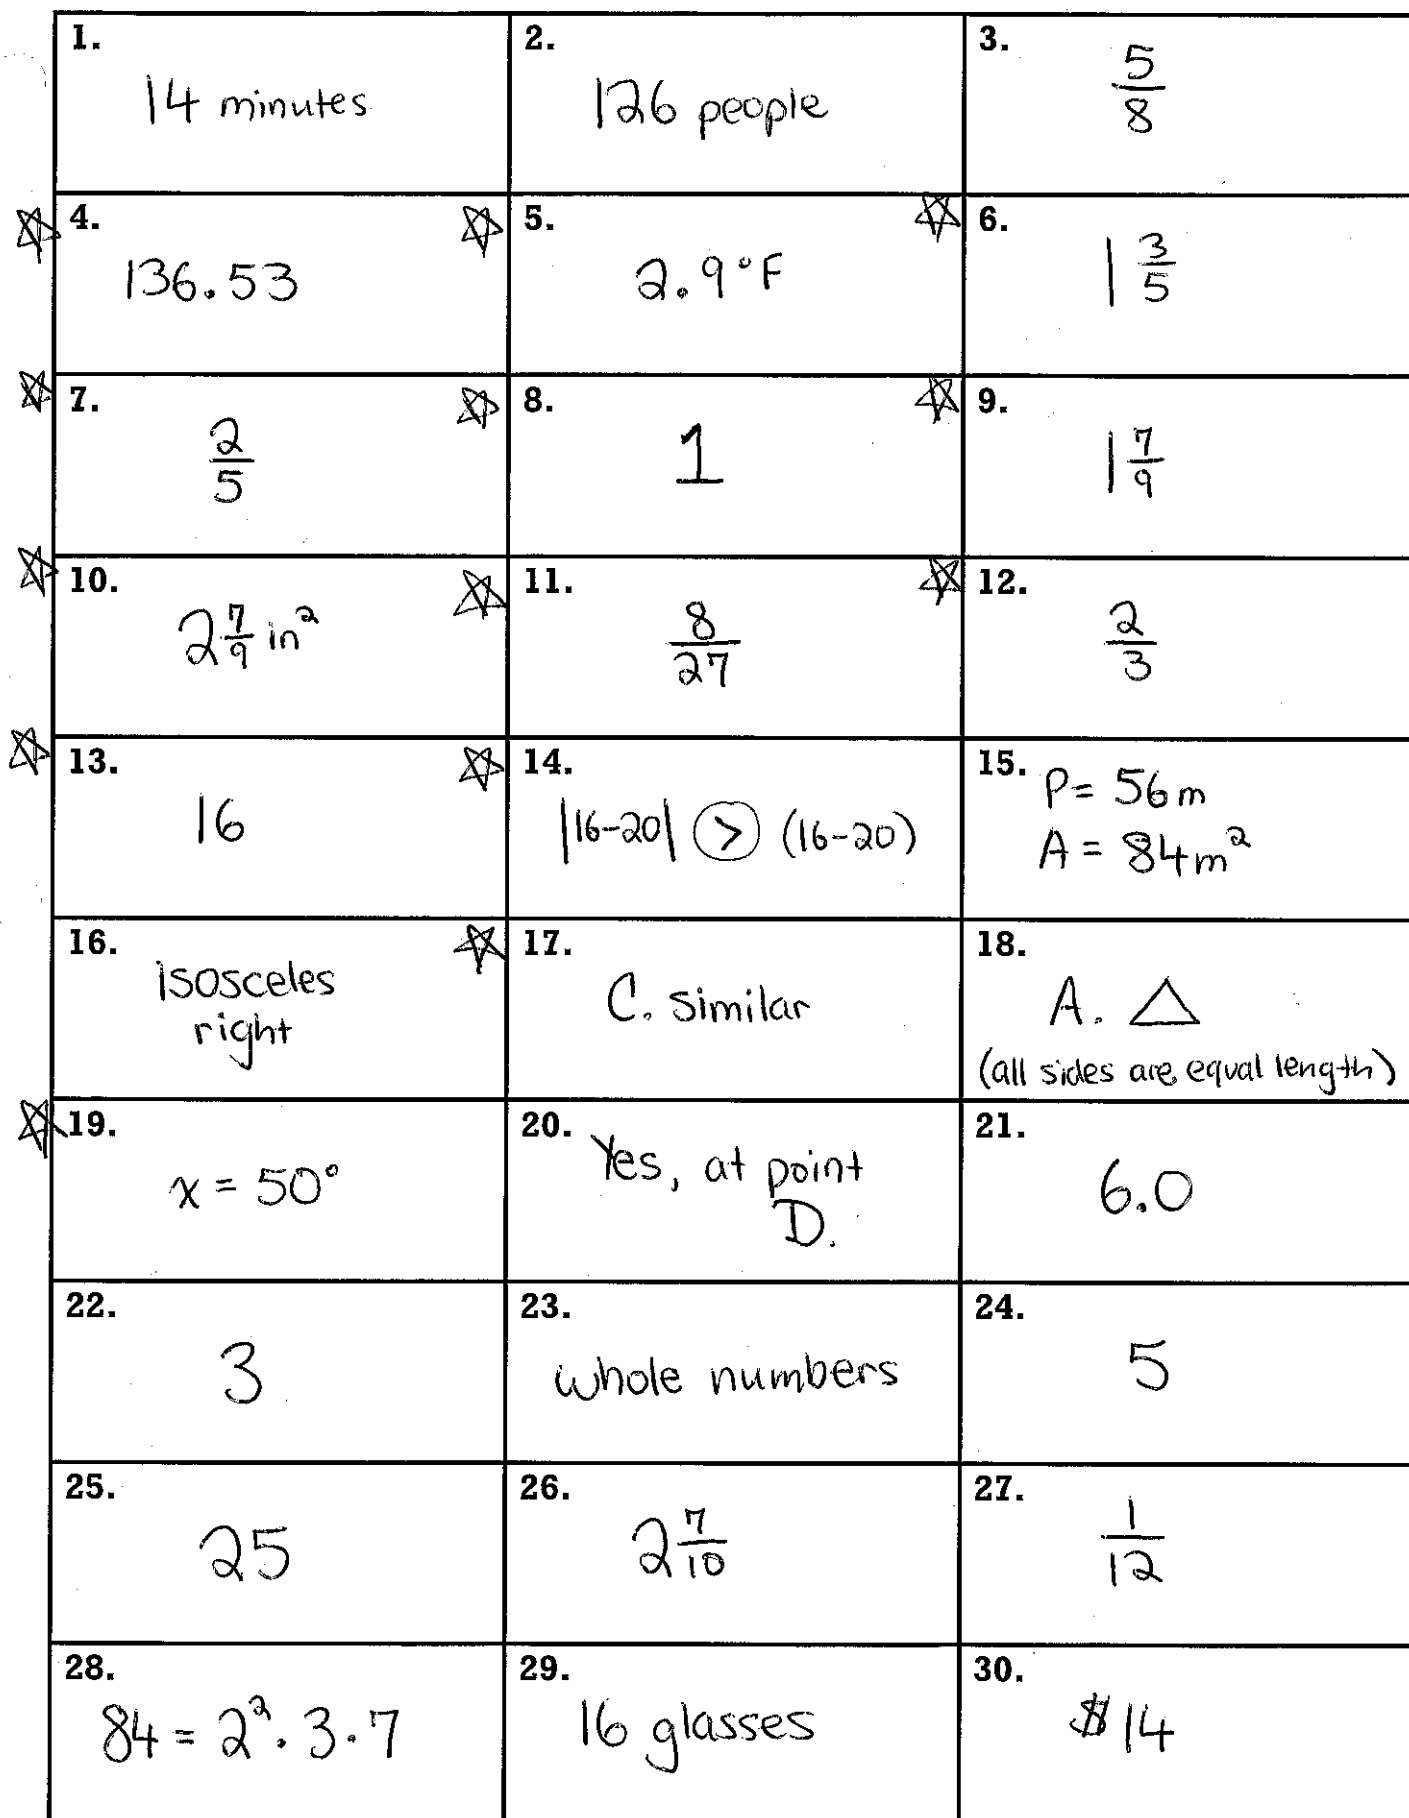 1.
14 minutes
2.
126 people
3.
5/8
4.
136.53
5.
2.9°F
6.
1 3/5
7.
2/5
8.
1
9.
1 7/9
10.
2 7/9 in²
11.
8/27
12.
2/3
13.
16
14.
|16-20| > (16-20)
15.
P = 56m
A = 84m²
16.
isosceles
right
17.
C. similar
18.
A. △
(all sides are equal length)
19.
x = 50°
20.
Yes, at point
D.
21.
6.0
22.
3
23.
whole numbers
24.
5
25.
25
26.
2 7/10
27.
1/12
28.
84 = 2² · 3 · 7
29.
16 glasses
30.
$14